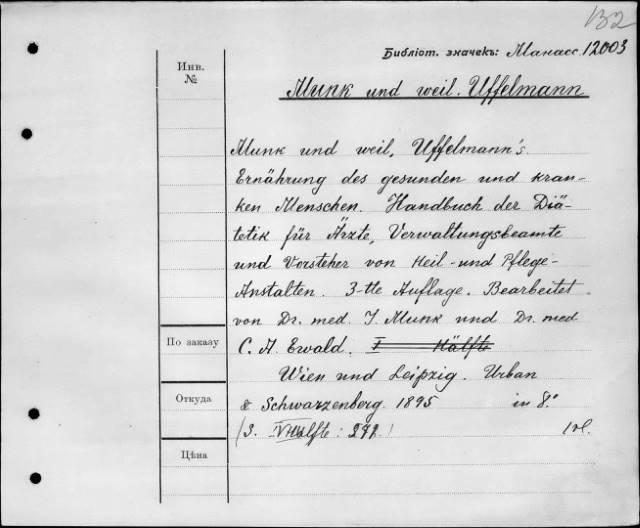 132
Библіот. значекъ: Манасс. 12003
Инв.
№
Munk und weil. Uffelmann
Munk und weil, Uffelmann's
Ernährung des gesunden und kran-
ken Menschen. Handbuch der Diä-
tetik für Ärzte, Verwaltungsbeamte
und Vorsteher von Heil- und Pflege-
Anstalten. 3-tte Auflage. Bearbeitet
von Dr. med. J. Munk und Dr. med
По заказу
C. A. Ewald. I Hälfte
Wien und Leipzig. Urban
Откуда
& Schwarzenberg. 1895 in 8.°
(3. Hälfte:
Цѣна